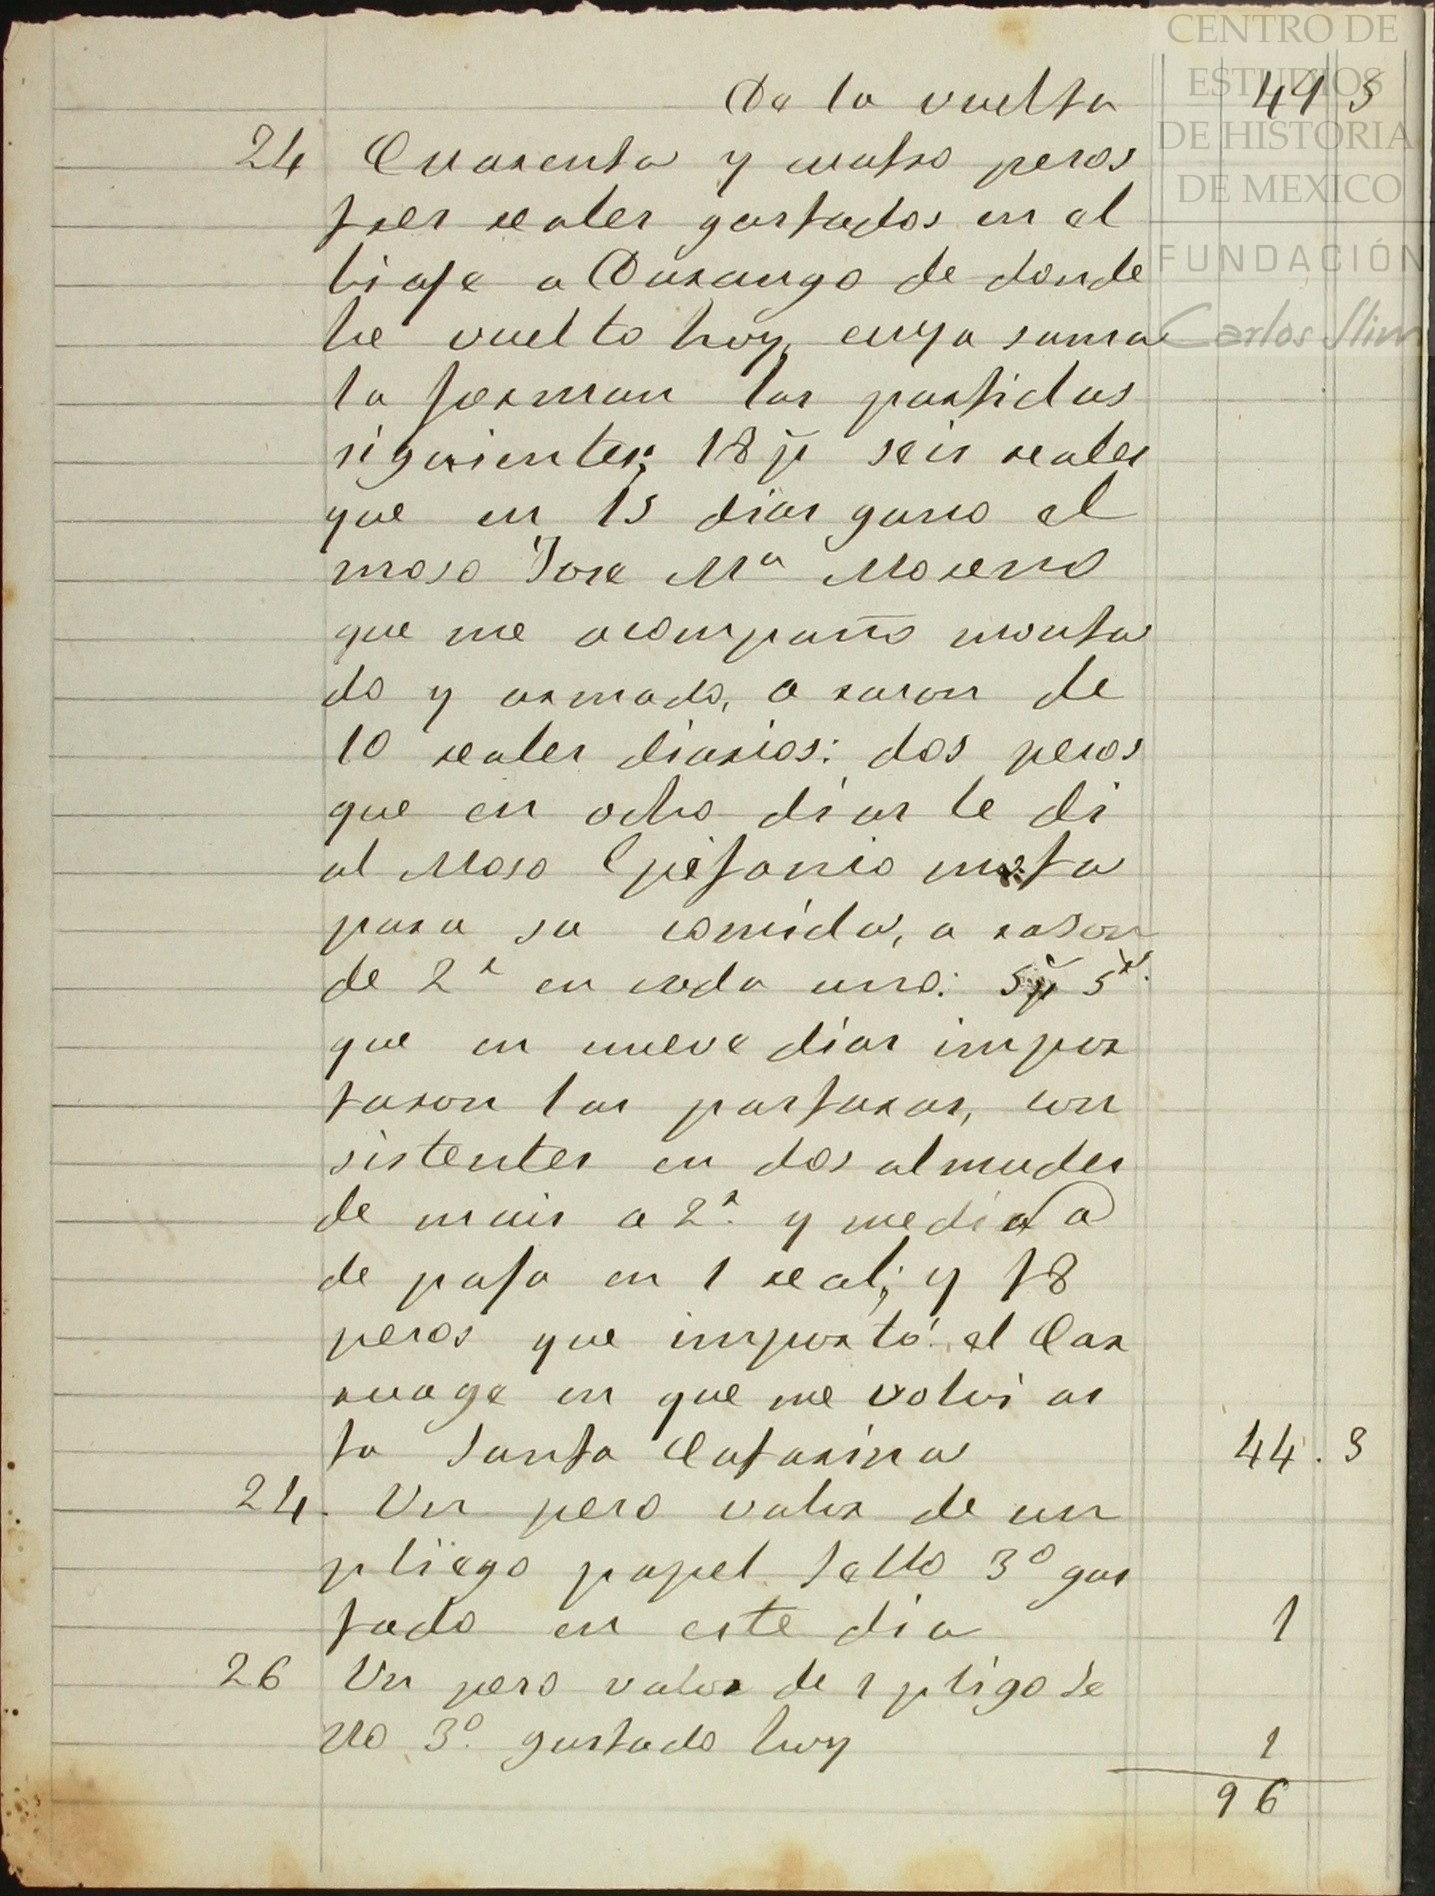 CENTRO DE
ESTUDIOS
DE HISTORIA
DE MEXICO
FUNDACIÓN
Carlos Slim
De la vuelta 49 5
24 Cuarenta y cuatro pesos
tres reales gastados en el
biaje a Durango de donde
he vuelto hoy, cuya suma
la forman las partidas
siguientes; 18 p seis reales
que en 15 dias gano el
moso Jose Mª Moreno
que me acompaño monta
do y armado, a rason de
10 reales diarios: dos pesos
que en ocho dias le di
al Moso Epifanio mata
para su comida, a rason
de 2 r en cada uno: 5 p 5 r.
que en nueve dias impor
taron las pasturas, con
sistentes en dos almudes
de mais a 2 r. y media @
de paja en 1 real; y 18
pesos que importó el Car
ruage en que me volvi as
ta Santa Catarina 44. 3
24. Un peso valor de un
pliego papel Sello 3º gas
tado en este dia 1
26 Un peso valor de 1 pligo Se
llo 3º. gastado hoy 1
96